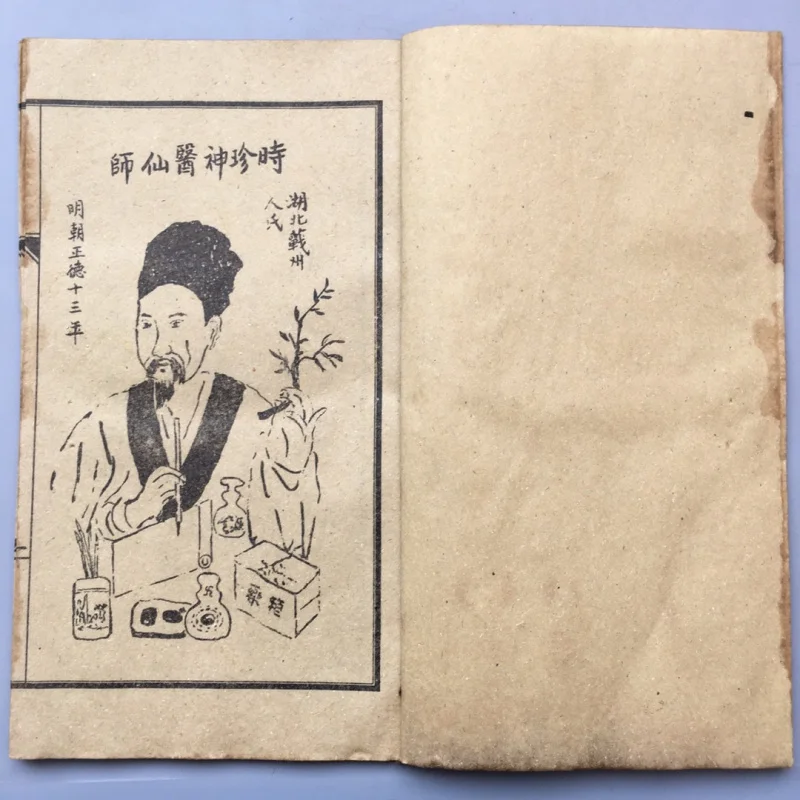 時珍神醫仙師
湖北蘄州
人氏
明朝正德十三年